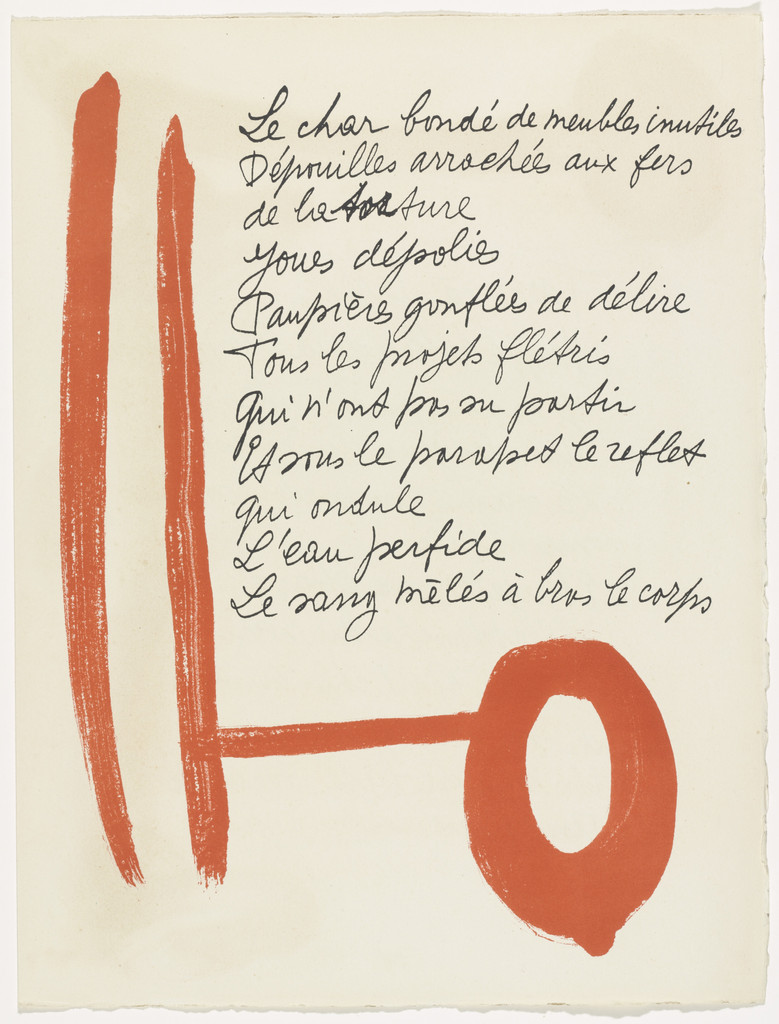 Le char bondé de meubles inutiles
Dépouilles arrachées aux fers
de la torture
Joues dépolies
Paupières gonflées de délire
Tous les projets flétris
Qui n'ont pas su partir
Et sous le parapet le reflet
qui ondule
L'eau perfide
Le sang mêlés à bras le corps